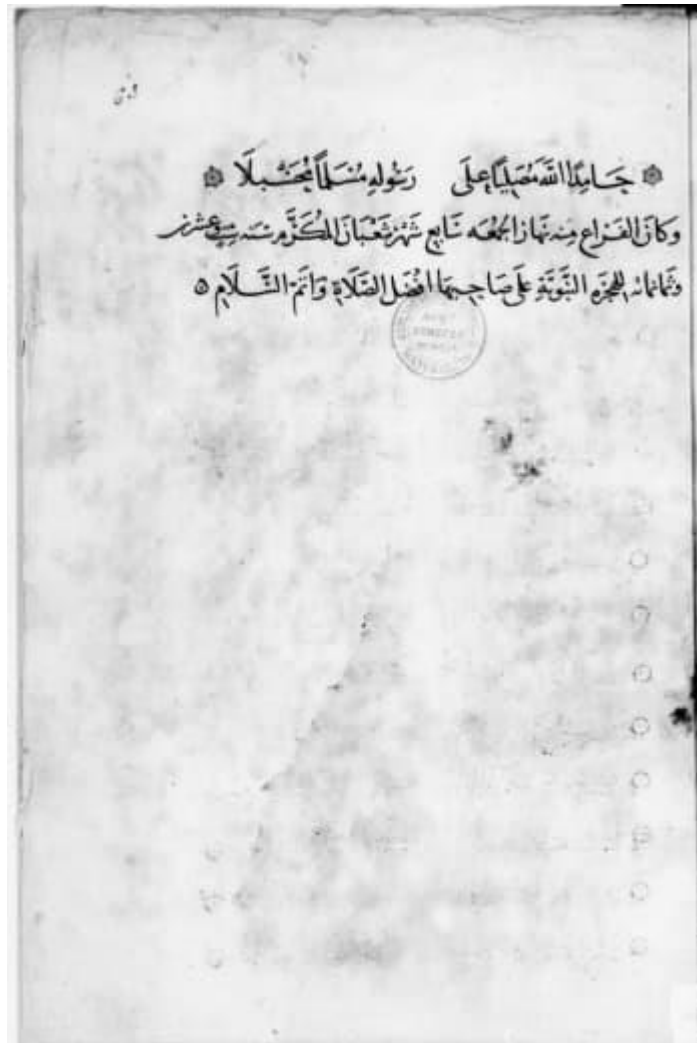 حَامِدًا اللّٰهَ مُصَلِّيًا عَلَى رَسُولِهِ مُسَلِّمًا مُحَسْبِلًا
وَكَانَ الفَرَاغ مِنه نَهَار الجُمُعَه سَابِع شَهْر شَعْبَانَ المُكَرَّم سَنَه عشرين
وثمانمائه للهجرَهِ النَّبَوِيَّةِ عَلَى صَاحِبِهَا افْضَل الصَّلَاةِ وَاتَمّ السَّلَامِ